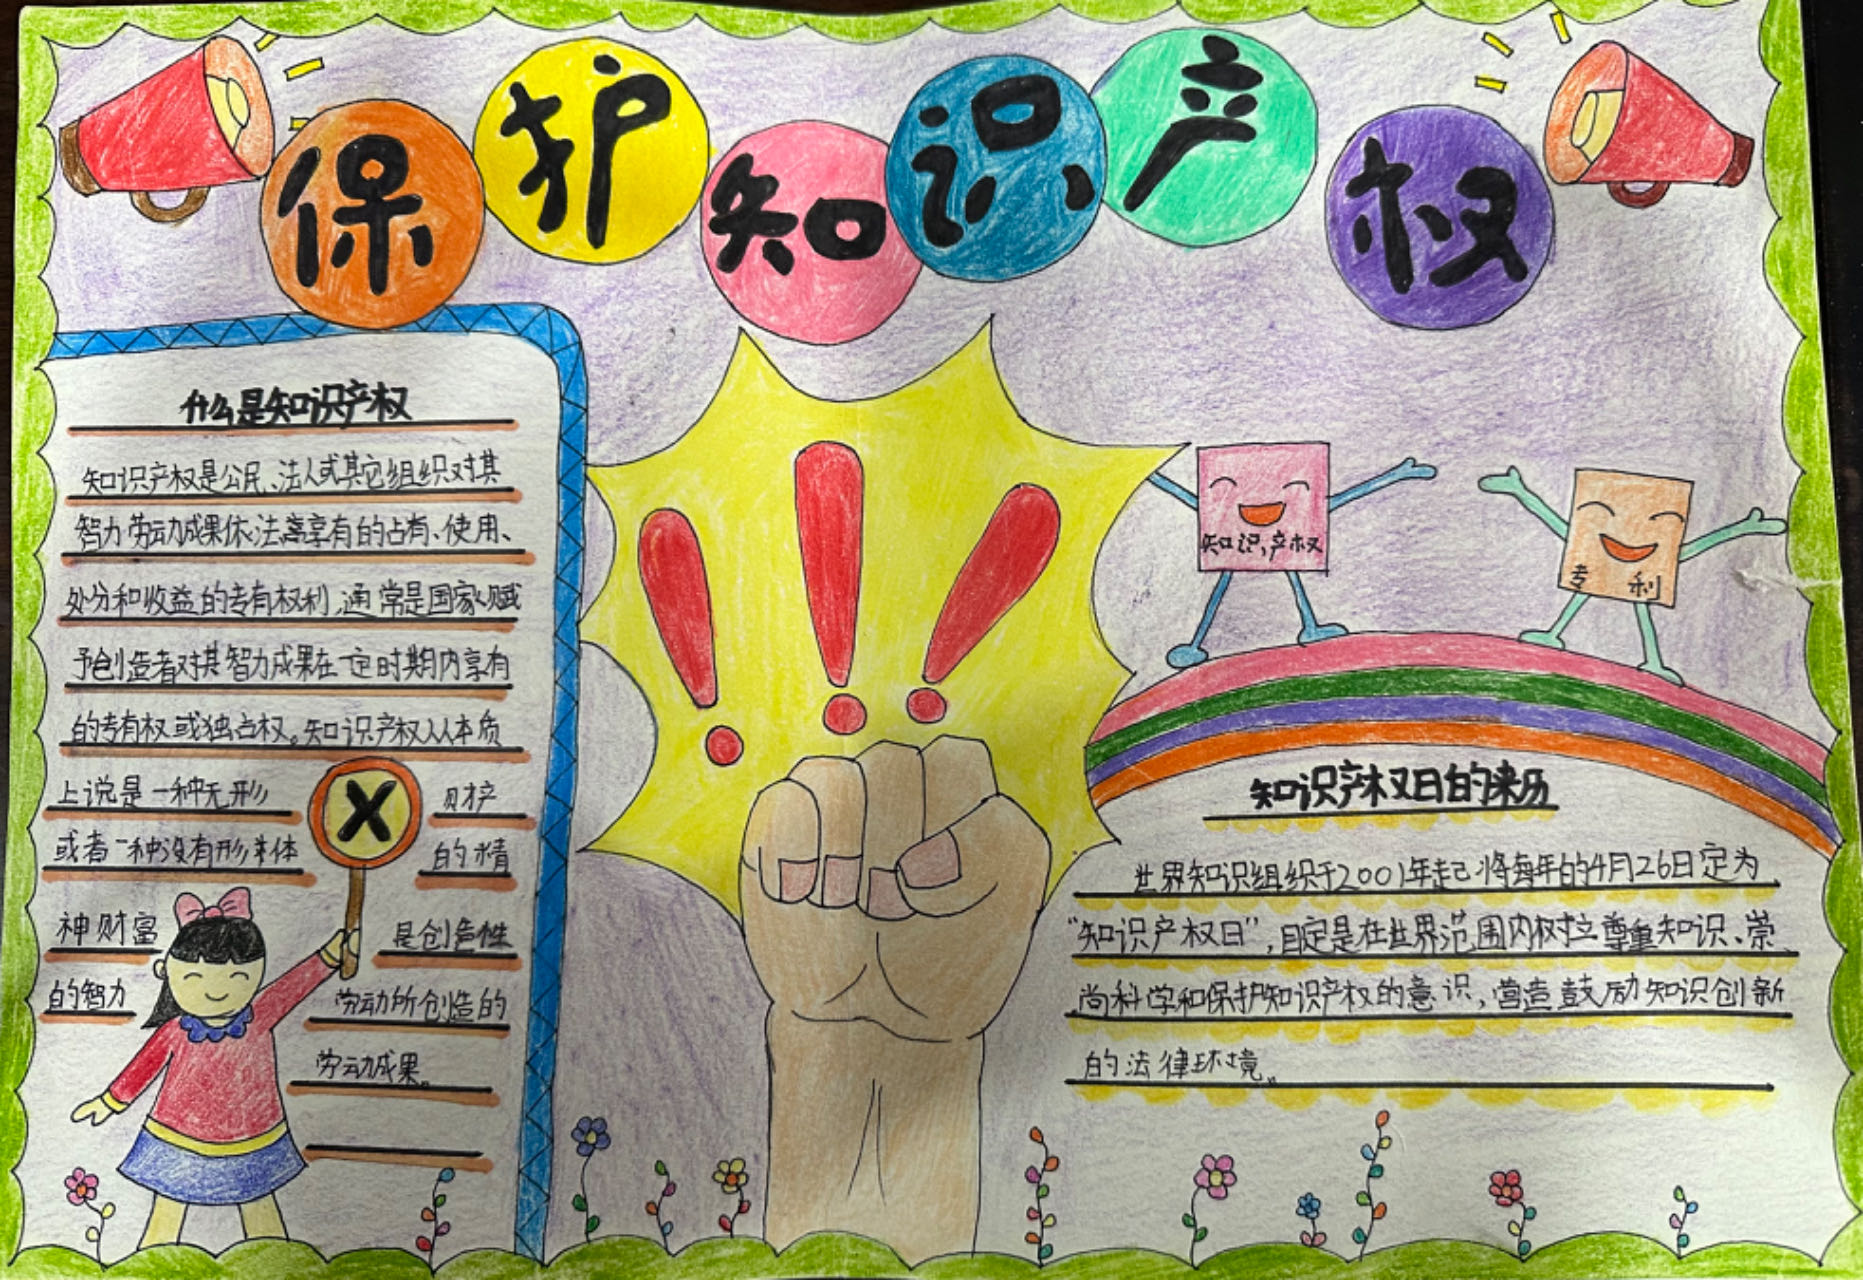 保护知识产权
什么是知识产权
知识产权是公民、法人或其它组织对其
智力劳动成果依法享有的占有、使用、
处分和收益的专有权利,通常是国家赋
予创造者对其智力成果在一定时期内享有
的专有权或独占权。知识产权从本质
上说是一种无形 财产
或者一种没有形体 的精
神财富 是创造性
的智力 劳动所创造的
劳动成果。
X
知识产权
专利
知识产权日的来历
世界知识组织于2001年起将每年的4月26日定为
“知识产权日”,目定是在世界范围内树立尊重知识、崇
尚科学和保护知识产权的意识,营造鼓励知识创新
的法律环境。